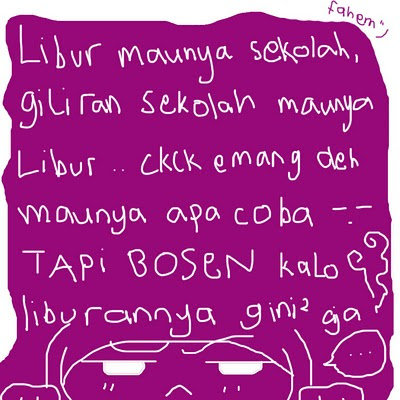 fahem :)
Libur maunya sekolah,
giliran sekolah maunya
Libur .. ckck emang deh
maunya apa coba -.-
TAPi BOSEN kalo
liburannya gini² ga
...